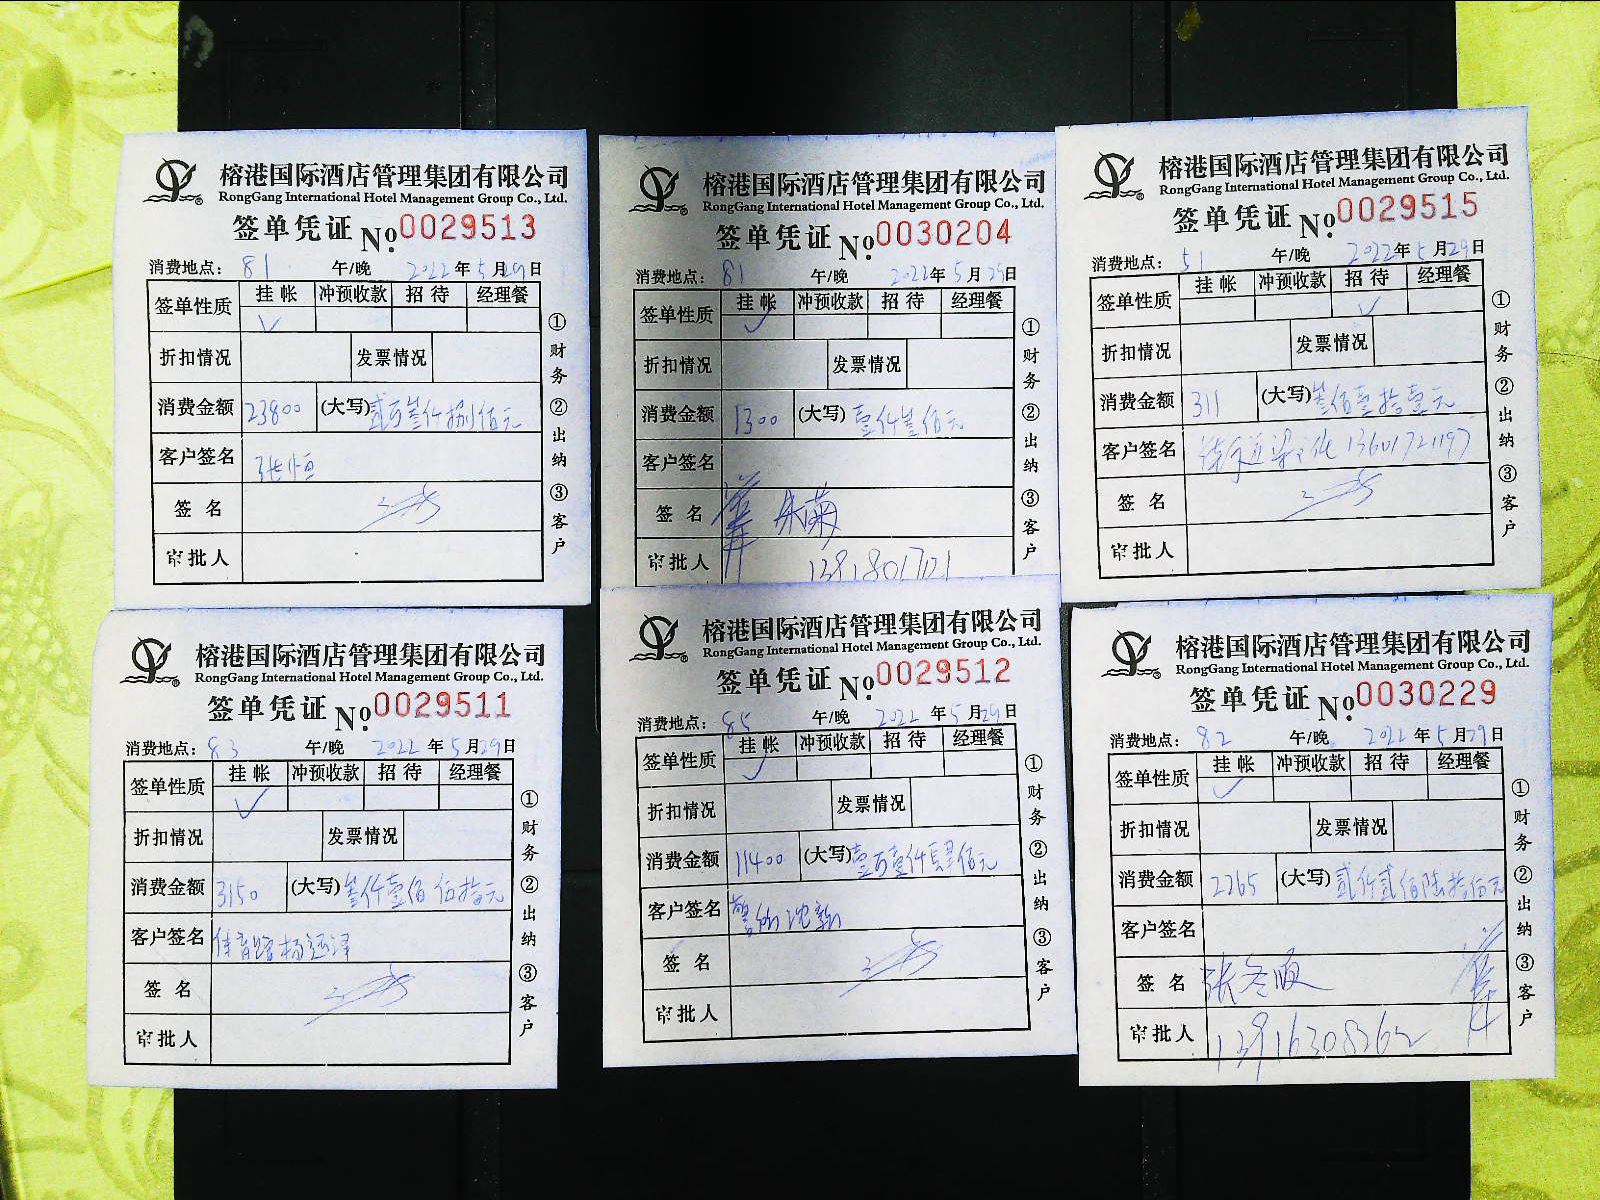 榕港国际酒店管理集团有限公司
RongGang International Hotel Management Group Co., Ltd.
签单凭证 No. 0029513
消费地点: 81 午/晚 2022年5月29日
签单性质 挂帐 冲预收款 招待 经理餐
✓
折扣情况 发票情况
消费金额 23800 (大写) 贰万叁仟捌佰元
客户签名 张恒
签名
审批人
①财务 ②出纳 ③客户
榕港国际酒店管理集团有限公司
RongGang International Hotel Management Group Co., Ltd.
签单凭证 No. 0030204
消费地点: 81 午/晚 2022年5月29日
签单性质 挂帐 冲预收款 招待 经理餐
✓
折扣情况 发票情况
消费金额 1300 (大写) 壹仟叁佰元
客户签名
签名 朱菊
审批人
①财务 ②出纳 ③客户
榕港国际酒店管理集团有限公司
RongGang International Hotel Management Group Co., Ltd.
签单凭证 No. 0029515
消费地点: 51 午/晚 2022年5月29日
签单性质 挂帐 冲预收款 招待 经理餐
✓
折扣情况 发票情况
消费金额 311 (大写) 叁佰壹拾壹元
客户签名 13601721197
签名
审批人
①财务 ②出纳 ③客户
榕港国际酒店管理集团有限公司
RongGang International Hotel Management Group Co., Ltd.
签单凭证 No. 0029511
消费地点: 83 午/晚 2022年5月29日
签单性质 挂帐 冲预收款 招待 经理餐
✓
折扣情况 发票情况
消费金额 3150 (大写) 叁仟壹佰伍拾元
客户签名 体育路杨
签名
审批人
①财务 ②出纳 ③客户
榕港国际酒店管理集团有限公司
RongGang International Hotel Management Group Co., Ltd.
签单凭证 No. 0029512
消费地点: 85 午/晚 2022年5月29日
签单性质 挂帐 冲预收款 招待 经理餐
✓
折扣情况 发票情况
消费金额 11400 (大写) 壹万壹仟肆佰元
客户签名
签名
审批人
①财务 ②出纳 ③客户
榕港国际酒店管理集团有限公司
RongGang International Hotel Management Group Co., Ltd.
签单凭证 No. 0030229
消费地点: 82 午/晚 2022年5月29日
签单性质 挂帐 冲预收款 招待 经理餐
✓
折扣情况 发票情况
消费金额 2265 (大写) 贰仟贰佰陆拾伍元
客户签名
签名 张冬顺
审批人 13916308362
①财务 ②出纳 ③客户